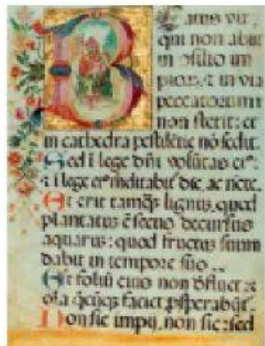 B eatus vir,
qui non abiit
in ɔsilio im
pioruʒ: ⁊ in via
peccatorum
non stetit: et
in cathedra pestilētie nō sedit.
Sed ī lege dn̄i volūtas eiꝰ:
⁊ ī lege eiꝰ meditabit̃ die, ac nocte.
Et erit tamq̃ȝ lignuȝ, quod
plantatuȝ ē secus decursus
aquaruȝ: quod fructuȝ suum
dabit in tempore suo.
Et foliū eius non defluet: ⁊
oīa q̄cūqȝ faciet
Non sic impij, non sic: sed